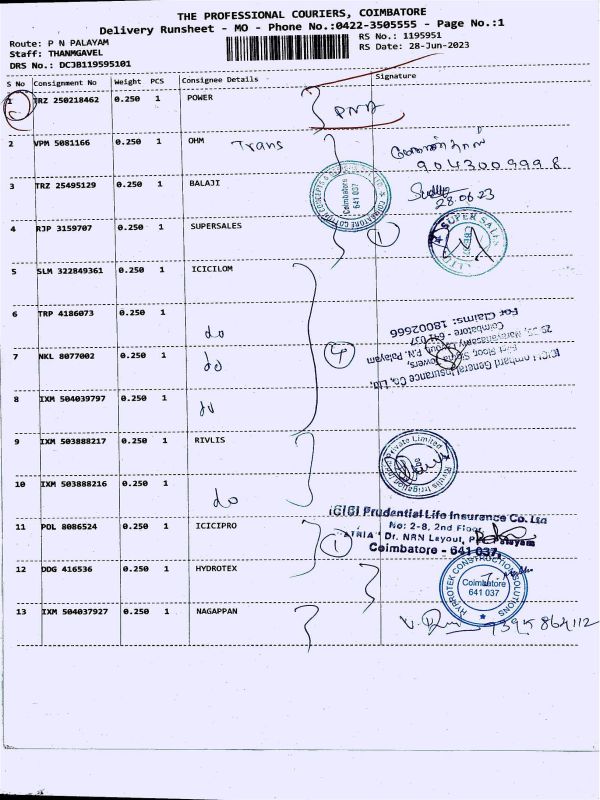 THE PROFESSIONAL COURIERS, COIMBATORE
Delivery Runsheet - MO - Phone No.:0422-3505555 - Page No.:1
Route: P N PALAYAM
Staff: THANMGAVEL
DRS No.: DCJB119595101
RS No.: 1195951
RS Date: 28-Jun-2023
S No Consignment No Weight PCS Consignee Details Signature
1 TRZ 250218462 0.250 1 POWER
2 VPM 5081166 0.250 1 OHM Trans
9043009998
3 TRZ 25495129 0.250 1 BALAJI
28.06.23
Coimbatore
641 037
4 RJP 3159707 0.250 1 SUPERSALES 1
SUPER SALES
5 SLM 322849361 0.250 1 ICICILOM
6 TRP 4186073 0.250 1 do
7 NKL 8077002 0.250 1 do 4
ICICI Lombard General Insurance Co, Ltd.
First Floor, Towers,
Coimbatore - 641 037
For Claims: 18002666
8 IXM 504039797 0.250 1 do
9 IXM 503888217 0.250 1 RIVLIS
Rivulis Irrigation India Private Limited
10 IXM 503888216 0.250 1 do
11 POL 8086524 0.250 1 ICICIPRO 1
ICICI Prudential Life Insurance Co. Ltd
No: 2-8, 2nd Floor,
"ATRIA" Dr. NRN Layout, P N Palayam
Coimbatore - 641 037
12 DDG 416536 0.250 1 HYDROTEX
HYDROTEK CONSTRUCTION SOLUTIONS
Coimbatore
641 037
13 IXM 504037927 0.250 1 NAGAPPAN